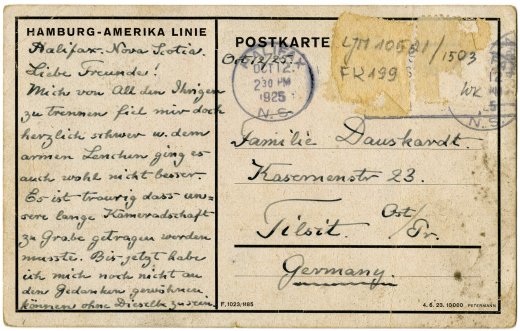 HAMBURG-AMERIKA LINIE
Halifax. Nova Scotia.
Liebe Freunde!
Mich von All den Ihrigen
zu trennen fiel mir doch
herzlich schwer u. dem
armen Lenchen ging es
auch wohl nicht besser.
Es ist traurig dass un-
sere lange Kameradschaft
zu Grabe getragen werden
musste. Bis jetzt habe
ich mich noch nicht an
den Gedanken gewöhnen
können ohne Dieselbe zu sein.
POSTKARTE
Oct 12/25.
HALIFAX
OCT 12
2 30 PM
1925
N.S.
LJM 10581/1503
FK 199
WK
N.S.
Familie Dauskardt.
Kasernenstr 23.
Tilsit. Ost/Pr.
Germany.
F. 1023/1185
4. 6. 23. 15000 PETERMANN